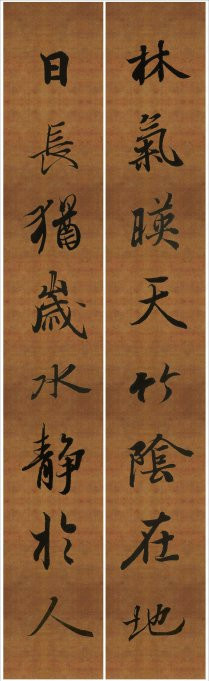 林氣暎天竹陰在地
日長猶歲水靜於人